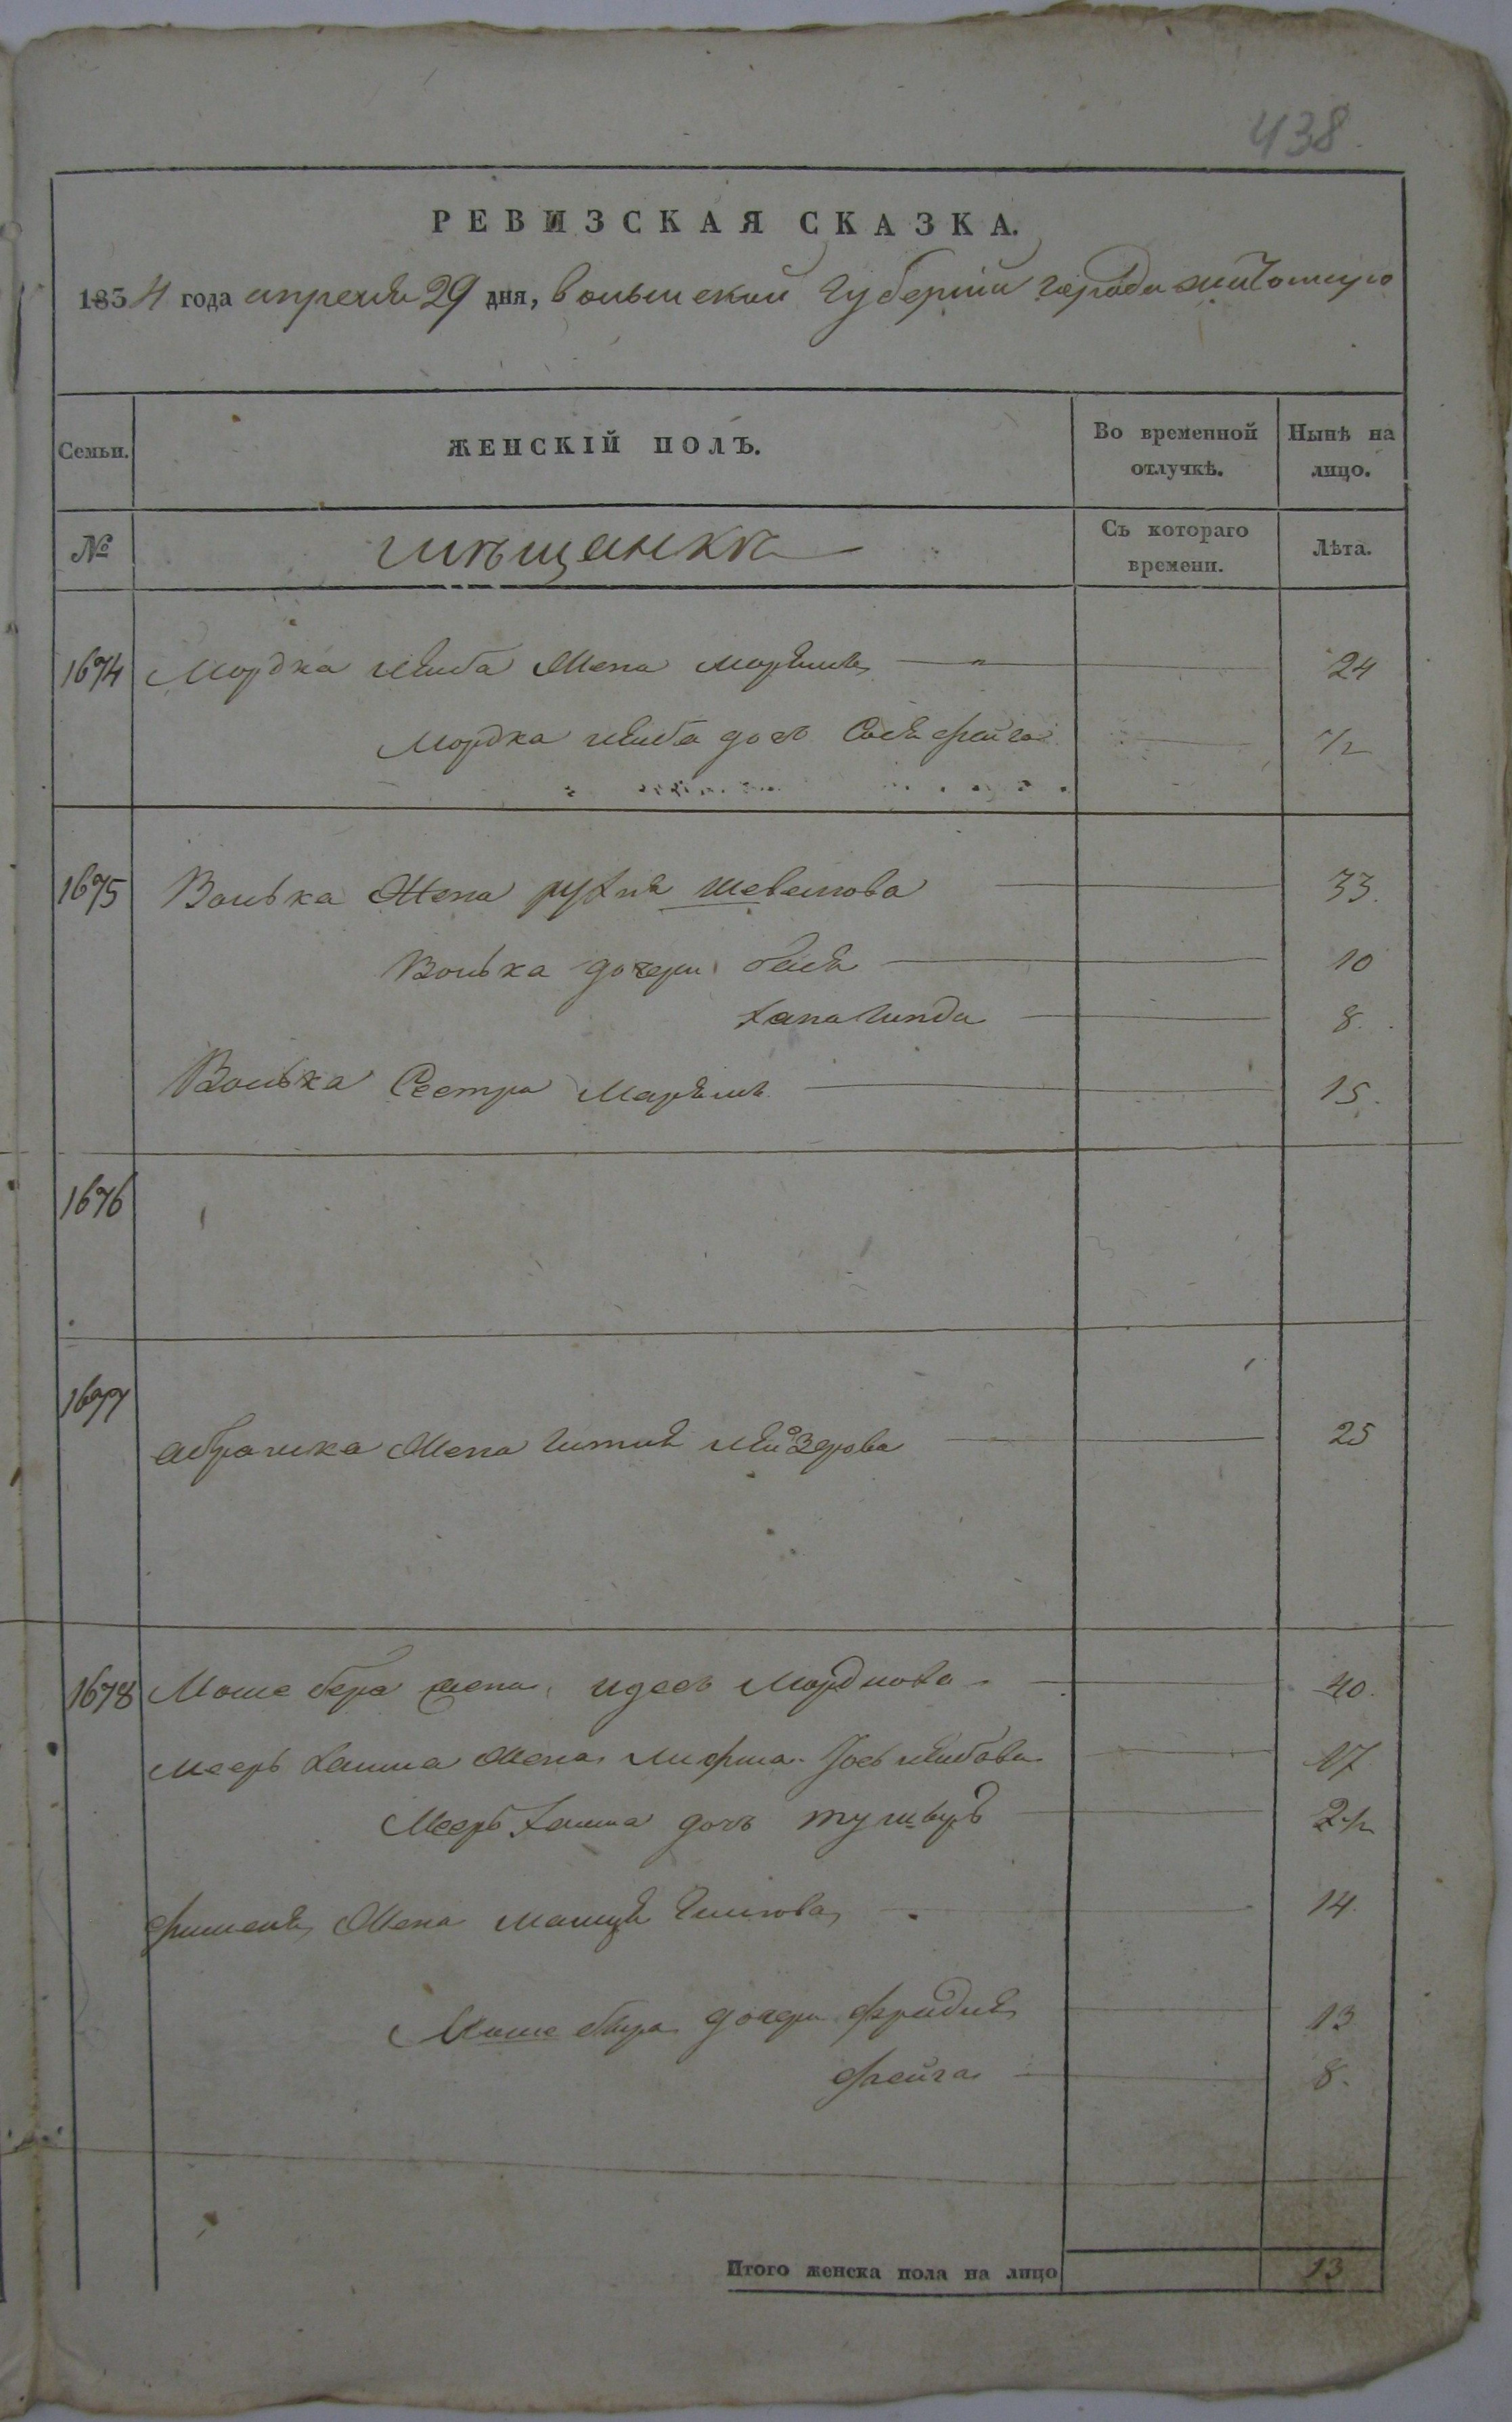 438
РЕВИЗСКАЯ СКАЗКА.
1834 года апреля 29 дня, волынской Губернии города Житомира
Семьи.
ЖЕНСКІЙ ПОЛЪ.
Во временной отлучкѣ.
Нынѣ на лицо.
№
мѣщанкѣ
Съ котораго времени.
Лѣта.
1674 Мордка лейба Жена 24
Мордка лейба дочь Сося фейга 1/2
1675 Волька Жена рухля Шевелиова 33.
Волька дочери бася 10
хана Гинда 8.
Волька Сестра Марьям 15.
1676
1677
абрамка Жена Гитля Лейзерова 25
1678 Моше бера жена идесь Мордкова 40.
Меерь хаима Жена Лифша Иось лейбова 17
Меерь хаима дочь 2 1/2
фишеля Жена 14.
Моше бера дочери фридля 13
фейга 8.
Итого женска пола на лицо 13